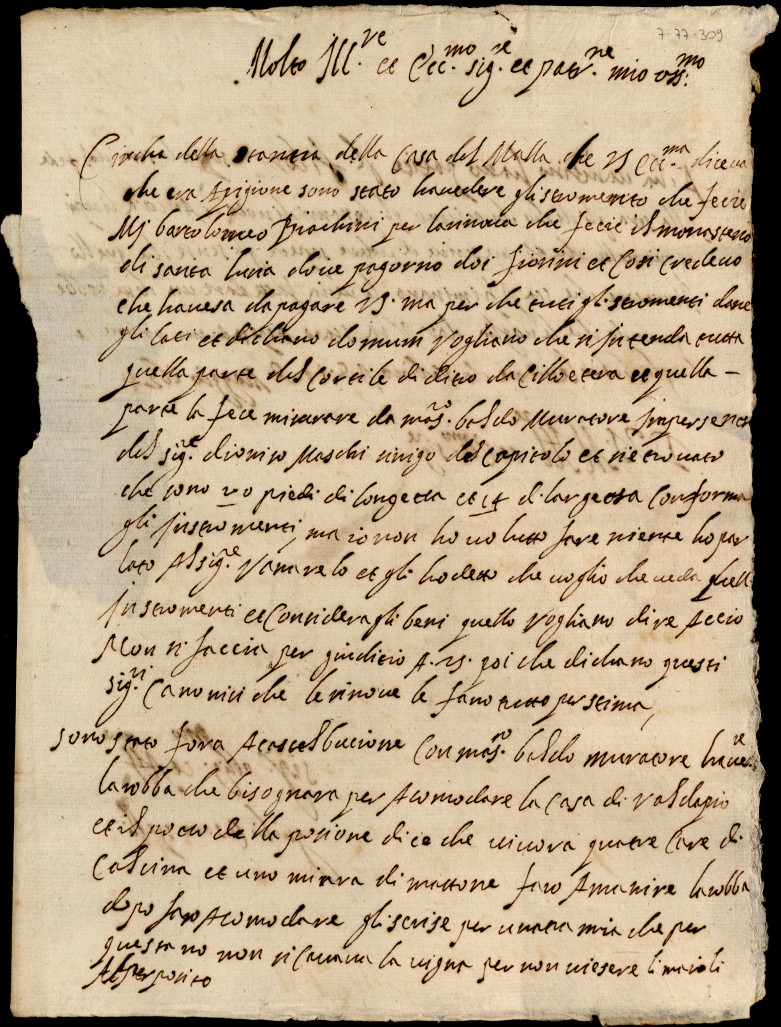 7-77-309
Molto Ill.re et Ecc.mo sig.re et patr.ne mio oss.mo
Circha della stantia della Casa del Malla che VS Ecc.ma diceva
che era Apigione sono stato havedere glistromento che fecie
Mj bartolomeo Biachini per larinova che fecie il monasterio
di santa lucia dove pagorno doi fiorini et Cosi credevo
che havesa dapagare VS. ma per che tutti gli stromenti dane
gli lati et dichano domum vogliano che si Intenda tutta
quella parte del Cortile di ditto da Cillo etera et quella –
parte la fece misurare da mas.ro baldo Muratore Impersencia
del sig.re dioniso Maschi del Capitolo et si e trovato
che sono 20 piedi di longetta et 14 di largetta Conforma
gli Instromenti, ma io non ho voluto fare niente ho par
lato Al sig.re Vanarelo et gli ho detto che voglio che veda quelli
Instromenti et Considera gli beni quello vogliano dire Accio
Non si faccia per giuditio A. VS. poi che dichano questi
sig.ri Canonici che le rinove le fano tutto per stima,
sono stato fora A Castel bucione Con mas.ro baldo muratore havere
la robba che bisognara per Acomodare la Casa di Valdapio
et il pozzo della posione dice che vi vora quatre Care di
Calcina et uno miara di mattone faro Amanire la robba
dopo faro Acomodare gli scrise per unatra mia che per
questano non si Cavava la vigna per non viesere li maioli
Al per posito